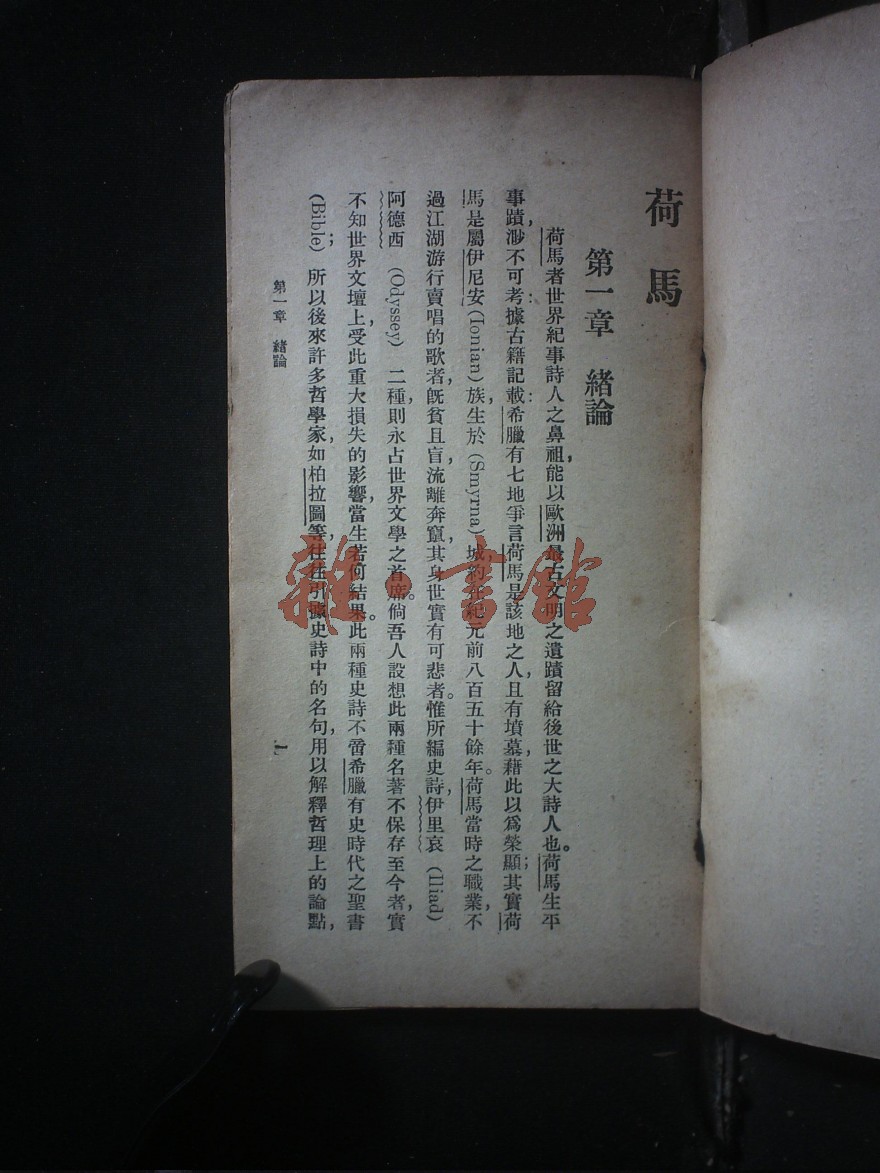 荷馬
第一章 緒論
荷馬者世界紀事詩人之鼻祖,能以歐洲最古文明之遺蹟留給後世之大詩人也。荷馬生平
事蹟,渺不可考:據古籍記載:希臘有七地爭言荷馬是該地之人,且有墳墓,藉此以爲榮顯;其實荷
馬是屬伊尼安(Ionian)族,生於(Smyrna)城,約在紀元前八百五十餘年。荷馬當時之職業,不
過江湖游行賣唱的歌者,旣貧且盲,流離奔竄,其身世實有可悲者。惟所編史詩,伊里哀(Iliad)
阿德西(Odyssey)二種,則永占世界文學之首席。倘吾人設想此兩種名著不保存至今者,實
不知世界文壇上,受此重大損失的影響,當生若何結果。此兩種史詩不啻希臘有史時代之聖書
(Bible);所以後來許多哲學家,如柏拉圖等,往往引據史詩中的名句,用以解釋哲理上的論點,
第一章 緒論
一
雜·書館